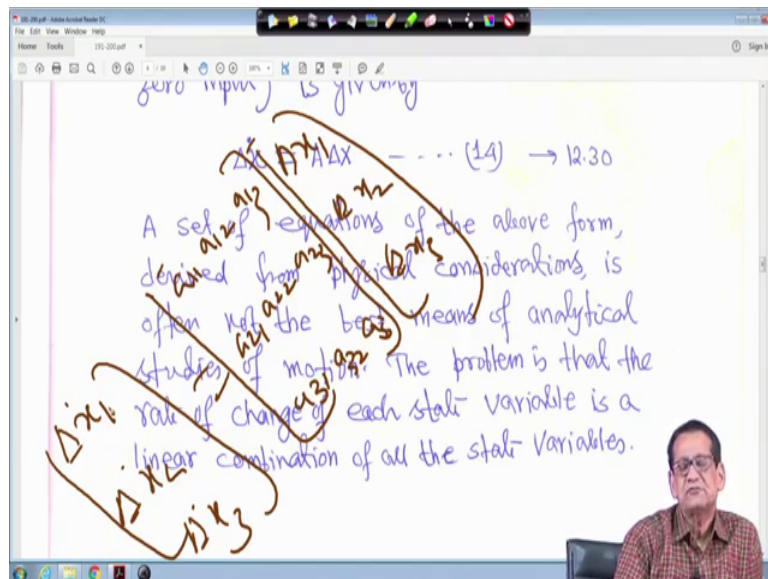 191-200.pdf - Adobe Acrobat Reader DC
File Edit View Window Help
Home Tools 191-200.pdf × Sign In
zero input) is given by
Δẋ = AΔX ---- (14) → 12.30
A set of equations of the above form,
derived from physical considerations, is
often not the best means of analytical
studies of motion. The problem is that the
rate of change of each state variable is a
linear combination of all the state variables.
Δẋ1
Δẋ2
Δẋ3
a11 a12 a13
a21 a22 a23
a31 a32 a3
Δx1
Δx2
Δx3